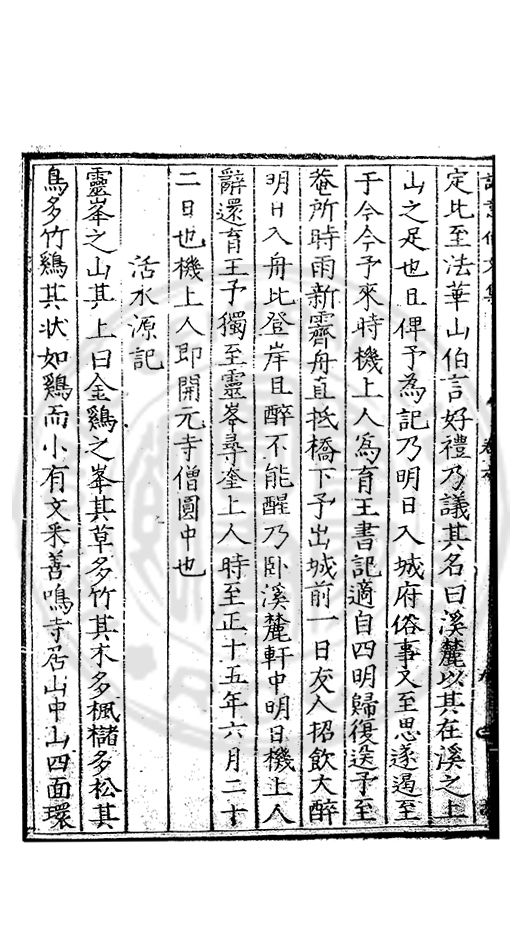 定比至法華山伯言好禮乃議其名曰溪麓以其在溪之上
山之足也且俾予為記乃明日入城府俗事又至思遂遏至
于今今予來時機上人爲育王書記適自四明歸復送予至
菴所時雨新霽舟直抵橋下予出城前一日友人招飲大醉
明日入舟比登岸且醉不能醒乃卧溪麓軒中明日機上人
辭還育王予獨至靈峯尋奎上人時至正十五年六月二十
二日也機上人即開元寺僧圓中也
活水源記
靈峯之山其上曰金鷄之峯其草多竹其木多楓櫧多松其
鳥多竹鷄其状如鷄而小有文采善鳴寺居山中山四面環